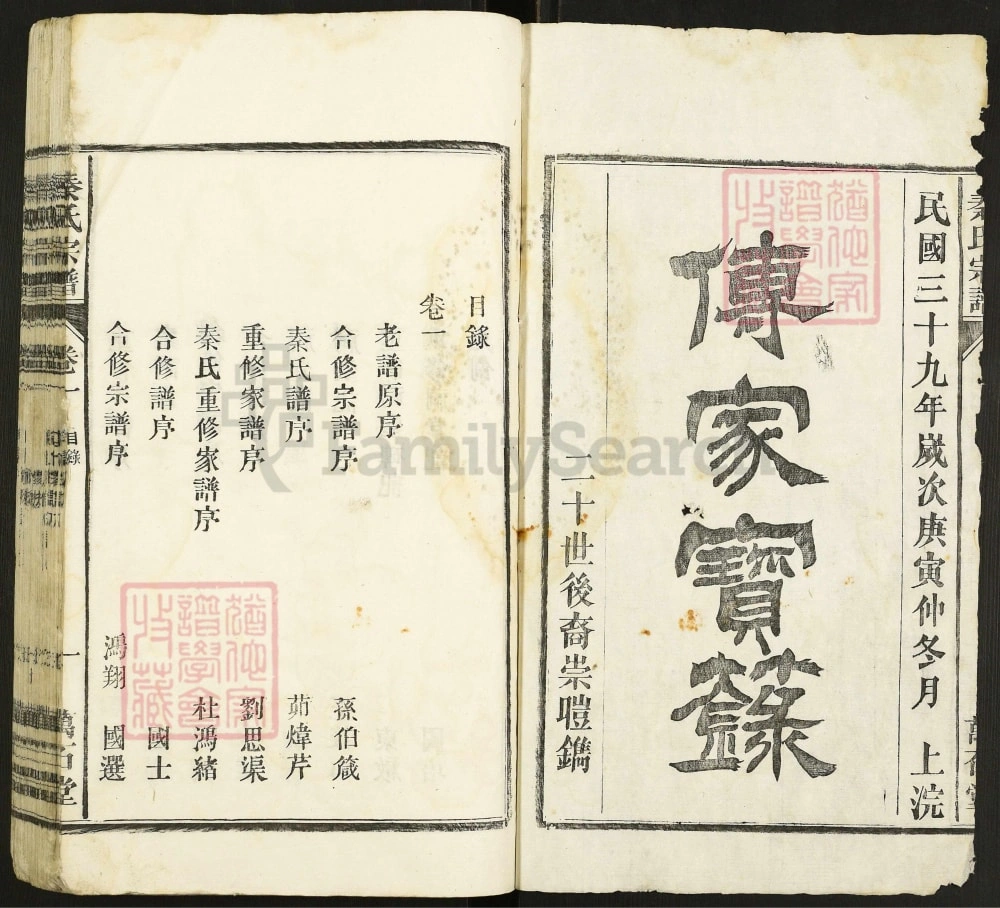 秦氏宗譜
民國三十九年歲次庚寅仲冬月 上浣
傳家寶籙
二十世後裔崇愷鐫
目錄
卷一
老譜原序
合修宗譜序 孫伯箴
秦氏譜序 茆煒芹
重修家譜序 劉思渠
秦氏重修家譜序 杜鴻緒
合修譜序 國士
合修宗譜序 鴻翔 國選
秦氏宗譜 卷一 目錄 一 萬石堂
FamilySearch